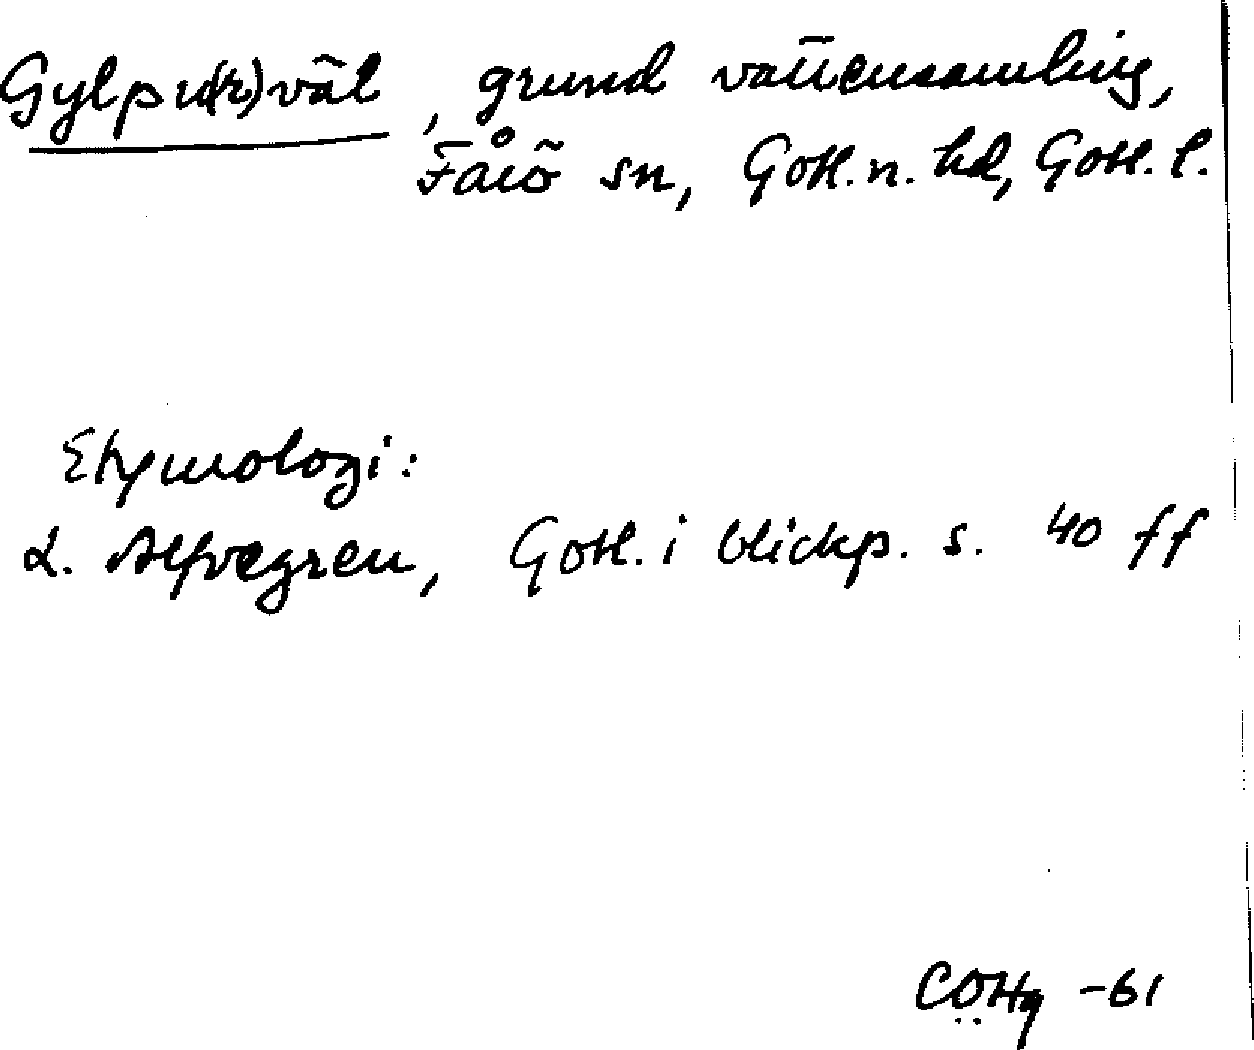 Gylpu(r)väl, grund vattensamling,
Fårö sn, Gotl. n. hd, Gotl. l.
Etymologi:
L. Alfvegren, Gotl. i blickp. s. 40 ff
-61